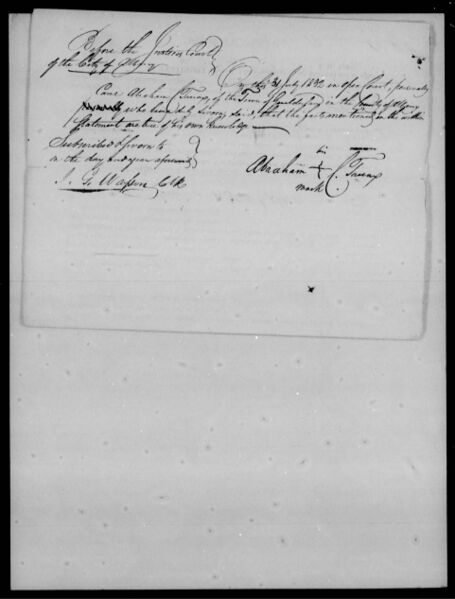 Before the Justices Court
of the City of Albany
On this 31 July 1832 in open Court, personally
Came Abraham C. Truax, of the Town of Guilderland in the County of Albany
who being duly sworn, said, that the facts mentioned in the within
Statement are true of his own knowledge
Subscribed & sworn to
on the day and year aforesaid
his
Abraham + C. Truax
mark
J. G. Wasson Clk